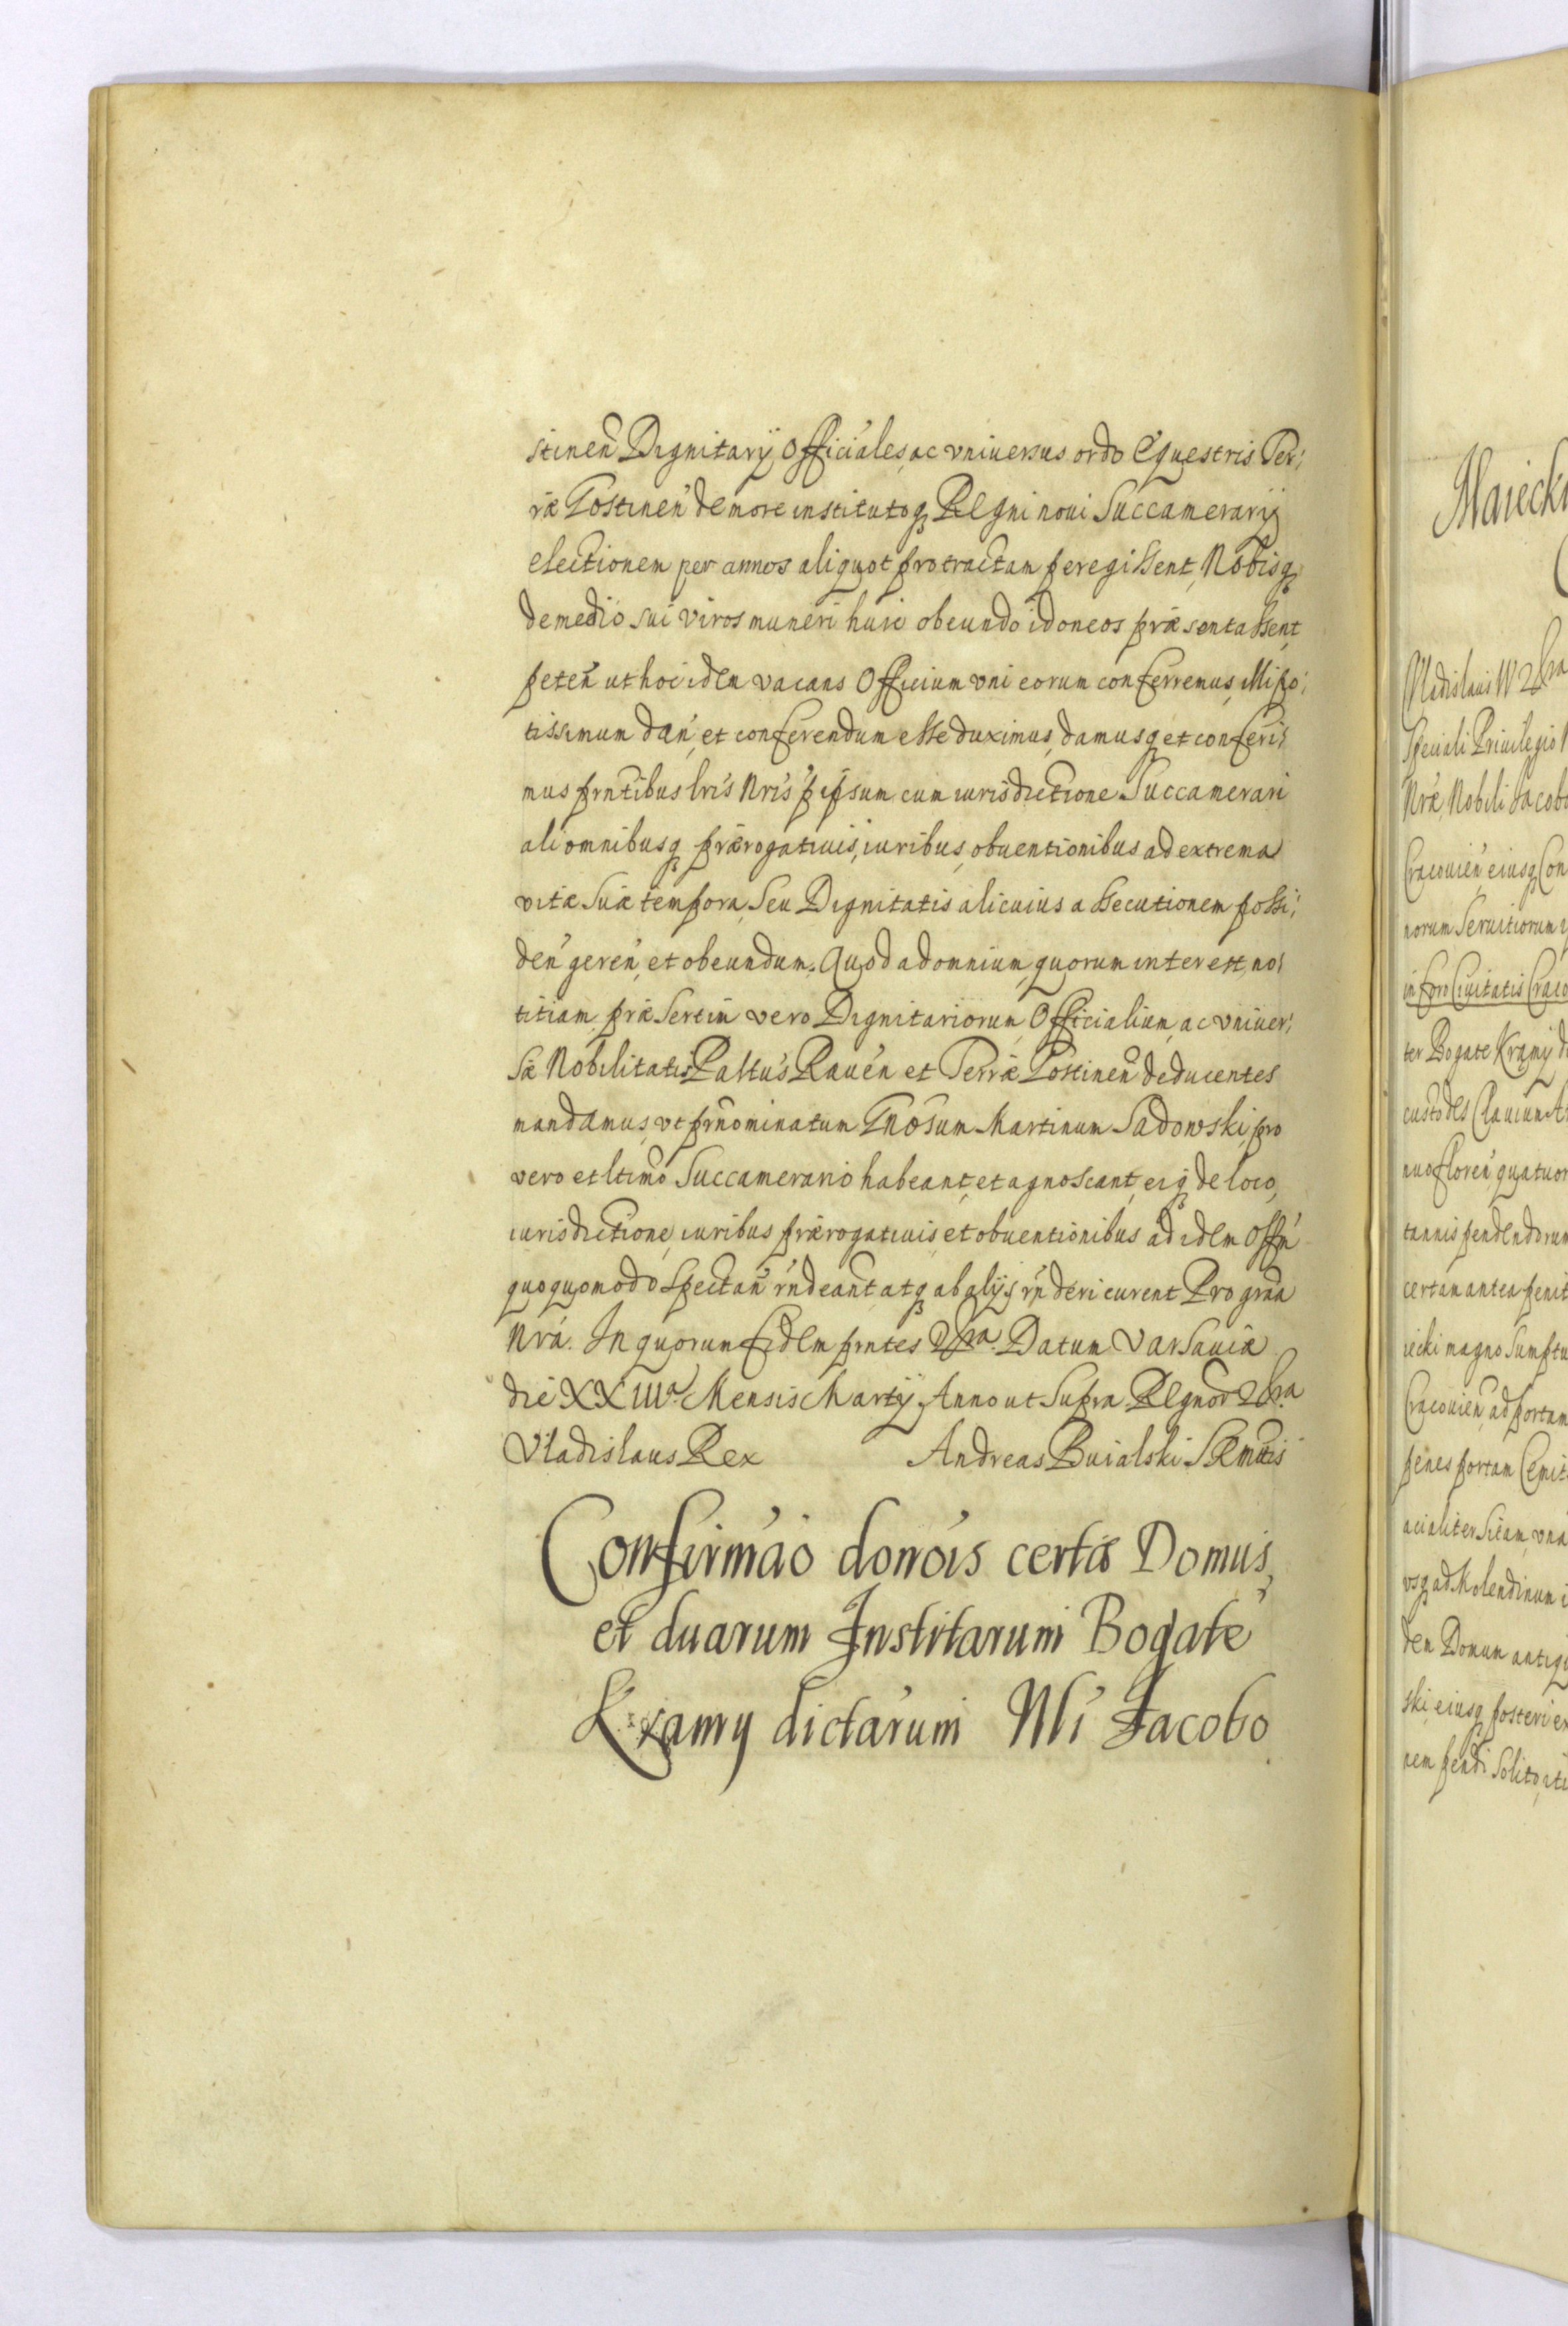 stinen̄ Dignitarij Officiales, ac vniuersus ordo Equestris Ter:
ræ Gostinen̄ de more institutoq₃ Regni noui Succamerarij
electionem per annos aliquot protractam peregissent, Nobisq₃
de medio sui viros muneri huic obeundo idoneos præsentassent,
peten̄ ut hoc idem vacans Officium vni eorum conferremus, illi po:
tissimum dan̄ et conferendum esse duximus, damusq₃ et conferi:
mus prn̄tibus lris Nris p̱ ipsum cum iurisdictione Succamerari
ali omnibusq₃ prærogatiuis, iuribus, obuentionibus ad extrema
vitæ suæ tempora, seu Dignitatis alicuius assecutionem possi:
den̄ geren̄ et obeundum. Quod ad omnium, quorum interest, no:
titiam, præsertim vero Dignitariorum, Officialium, ac vniuer:
sæ Nobilitatis Paltus Rauen̄ et Terræ Gostinen̄ deducentes
mandamus, vt prn̄ominatum Gnōsum Martinum Sadowski, pro
vero et ltimo Succamerario habeant, et agnoscant, eiq₃ de loco,
iurisdictione, iuribus prærogatiuis, et obuentionibus ad idem Offm̄
quoquomodo spectan̄ rn̄deant atq₃ ab alijs rn̄deri curent Pro grāa
Nra. In quorum fidem prn̄tes &ra. Datum Varsauiæ
die XXIIIa. Mensis Martij Anno ut supra Regnor̄ &ra
Vladislaus Rex Andreas Buialski SRMttis
Confirmāo donoīs certæ Domus,
et duarum Institarum Bogate
Kramy dictarum Nli Jacobo
Maiecki
Vladislaus IV &ra
Speciali Priuilegio
Nræ, Nobili Jacobo
Cracouien̄ eiusq₃ Con
norum Seruitiorum
in foro Ciuitatis Craco
ter Bogate Kramy d
custodes Clauium
nuo floren̄ quatuor
tannis pendendorum
certam antea penit
iecki magno sumptu
Cracouien̄ ad portam
penes portam
acialiter sitam, vna
vsq₃ ad Molendinum
dem Domum antiq
ski, eiusq₃ posteri ex
nem pendi solito, iti